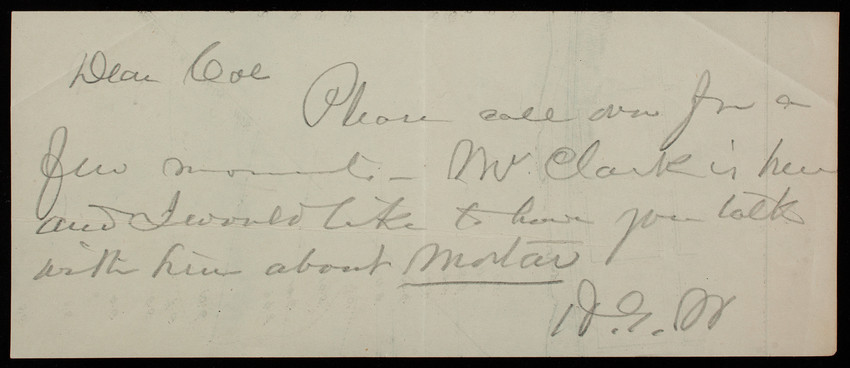 Dear Col
Please call over for a
few moments – Mr. Clark is here
and I would like to have you talk
with him about Mortar